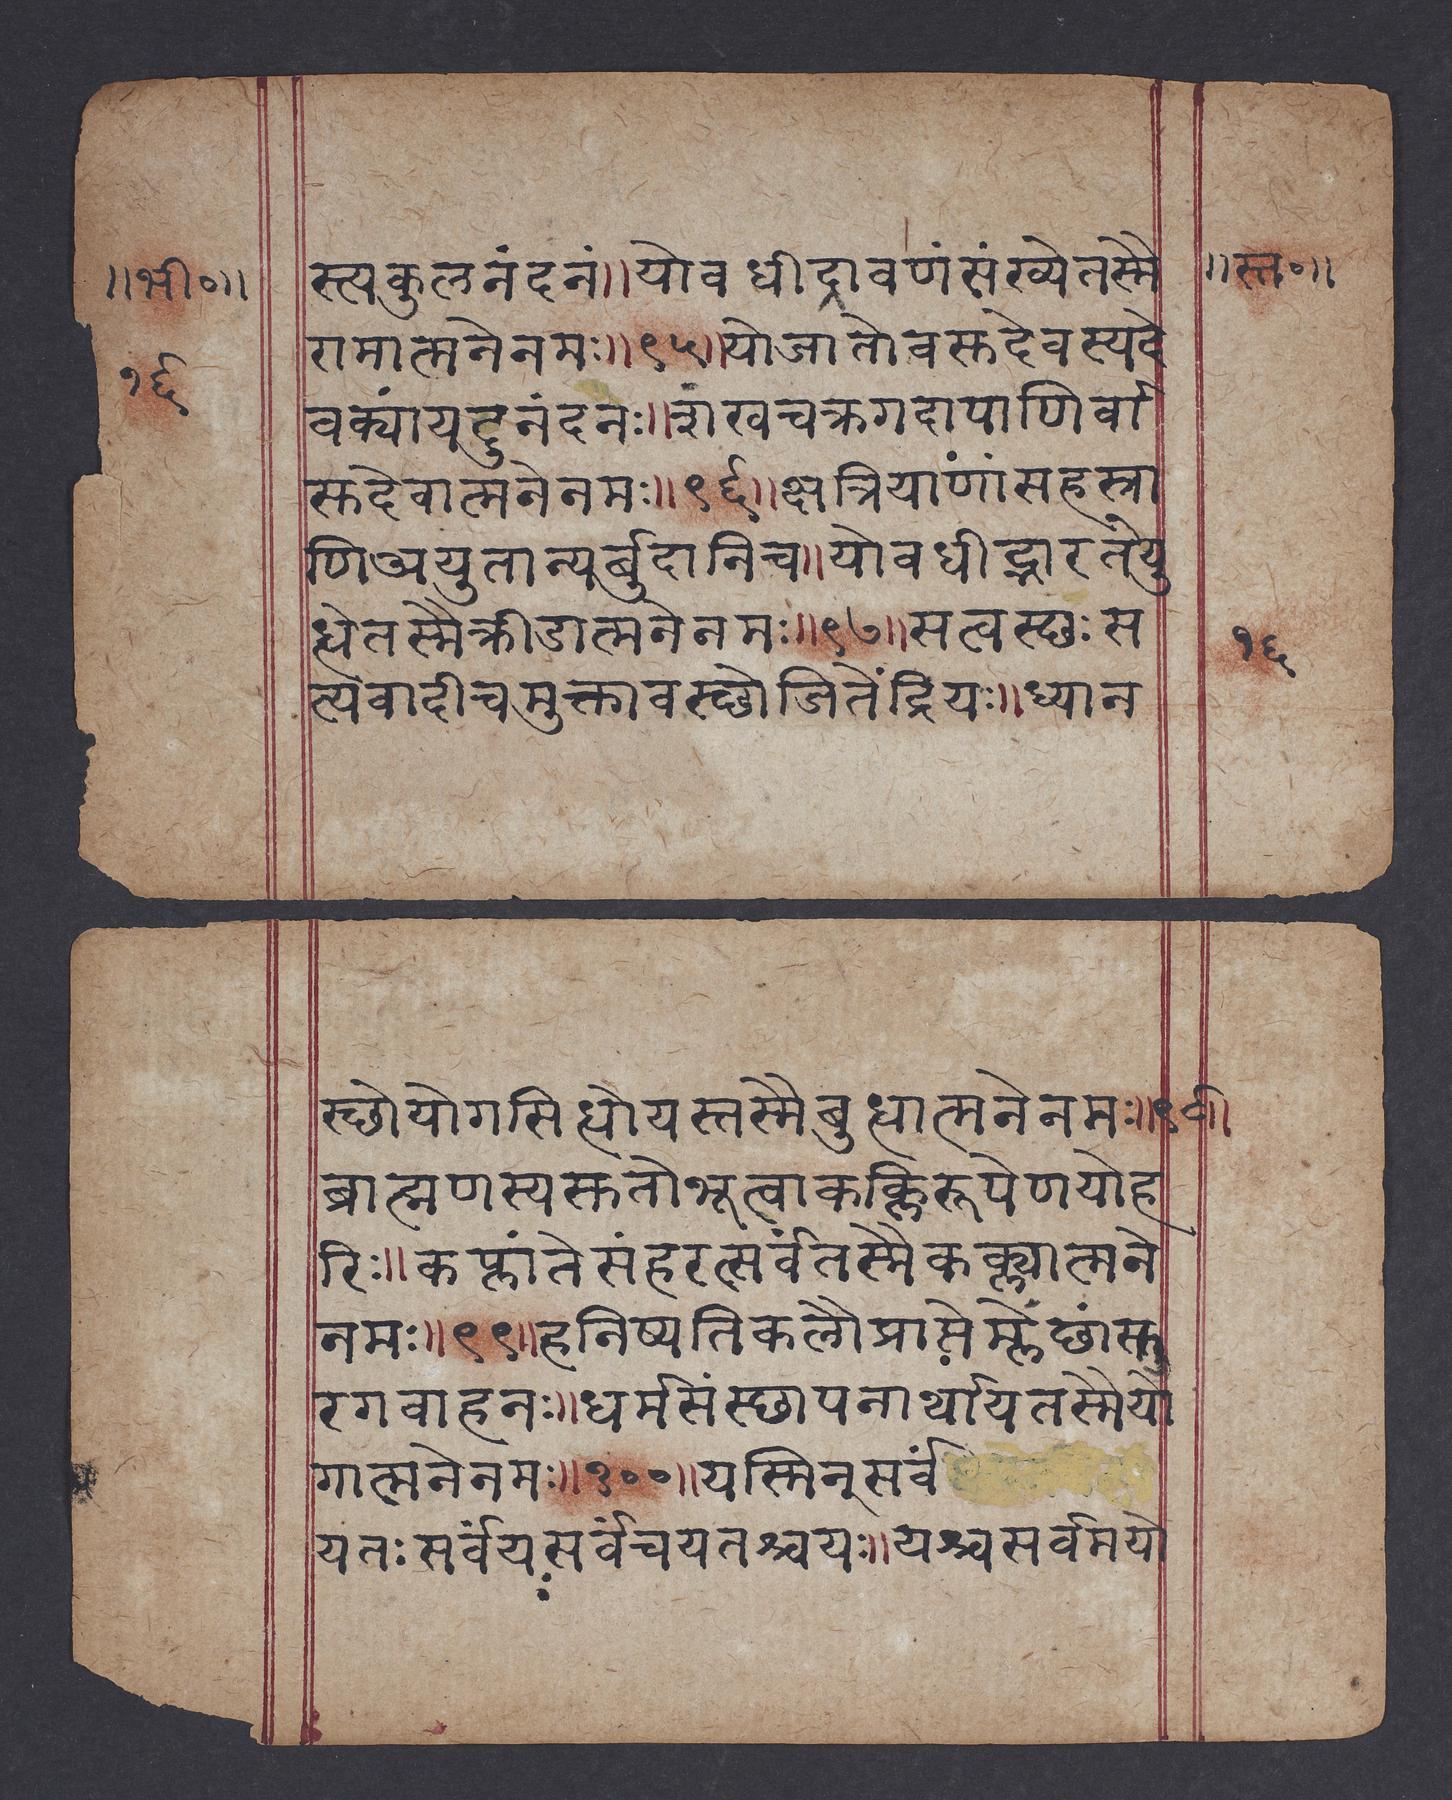 ॥भी०॥
१६
स्त्यकुलनंदनं॥योवधीद्रावणंसंख्येतस्मै
रामात्मनेनमः॥९५॥योजातोवस्तदेवस्यदे
वक्यांयदुनंदनः॥शंखचक्रगदापाणिर्वा
स्तदेवात्मनेनमः॥९६॥क्षत्रियाणांसहस्त्रा
णिअयुतान्यर्बुदानिच॥योवधीद्भारतेयु
ध्येतस्मैक्रीडात्मनेनमः॥९७॥सत्वस्छःस
त्यवादीचमुक्तावस्छोजितेंद्रियः॥ध्यान
॥स्त०॥
१६
स्छोयोगसिध्योयस्तस्मैबुध्यात्मनेनमः॥९८॥
ब्राह्मणस्यस्ततोभूत्वाकल्किरूपेणयोह
रिः॥कल्पांतेसंहरत्सर्वंतस्मैकल्क्यात्मने
नमः॥९९॥हनिष्यतिकलौप्राप्तेम्लेंछांस्तु
रगवाहनः॥धर्मसंस्छापनार्थायतस्मैयो
गात्मनेनमः॥१००॥यस्मिन्सर्वं
यतःसर्वंयःसर्वंचयतश्चयः॥यश्चसर्वमयो